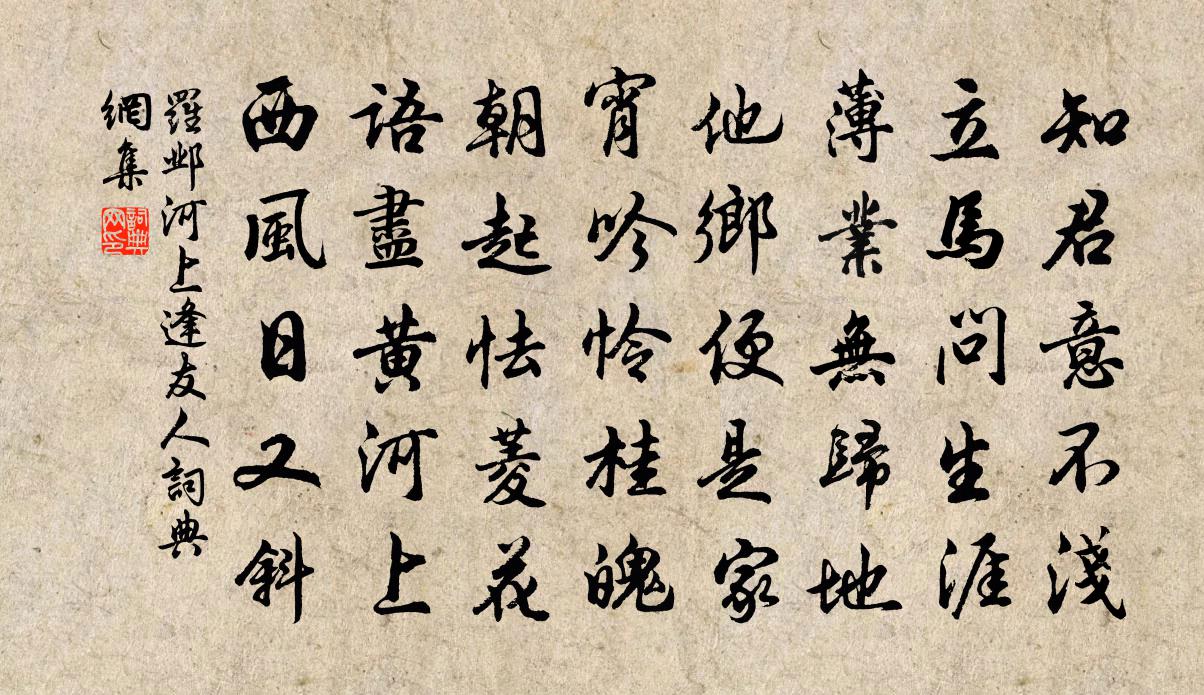 知君意不淺
立馬問生涯
薄業無歸地
他鄉便是家
宵吟怜桂魄
朝起怯菱花
語盡黃河上
西風日又斜
羅鄴河上逢友人詞典
網集
詞典
网印